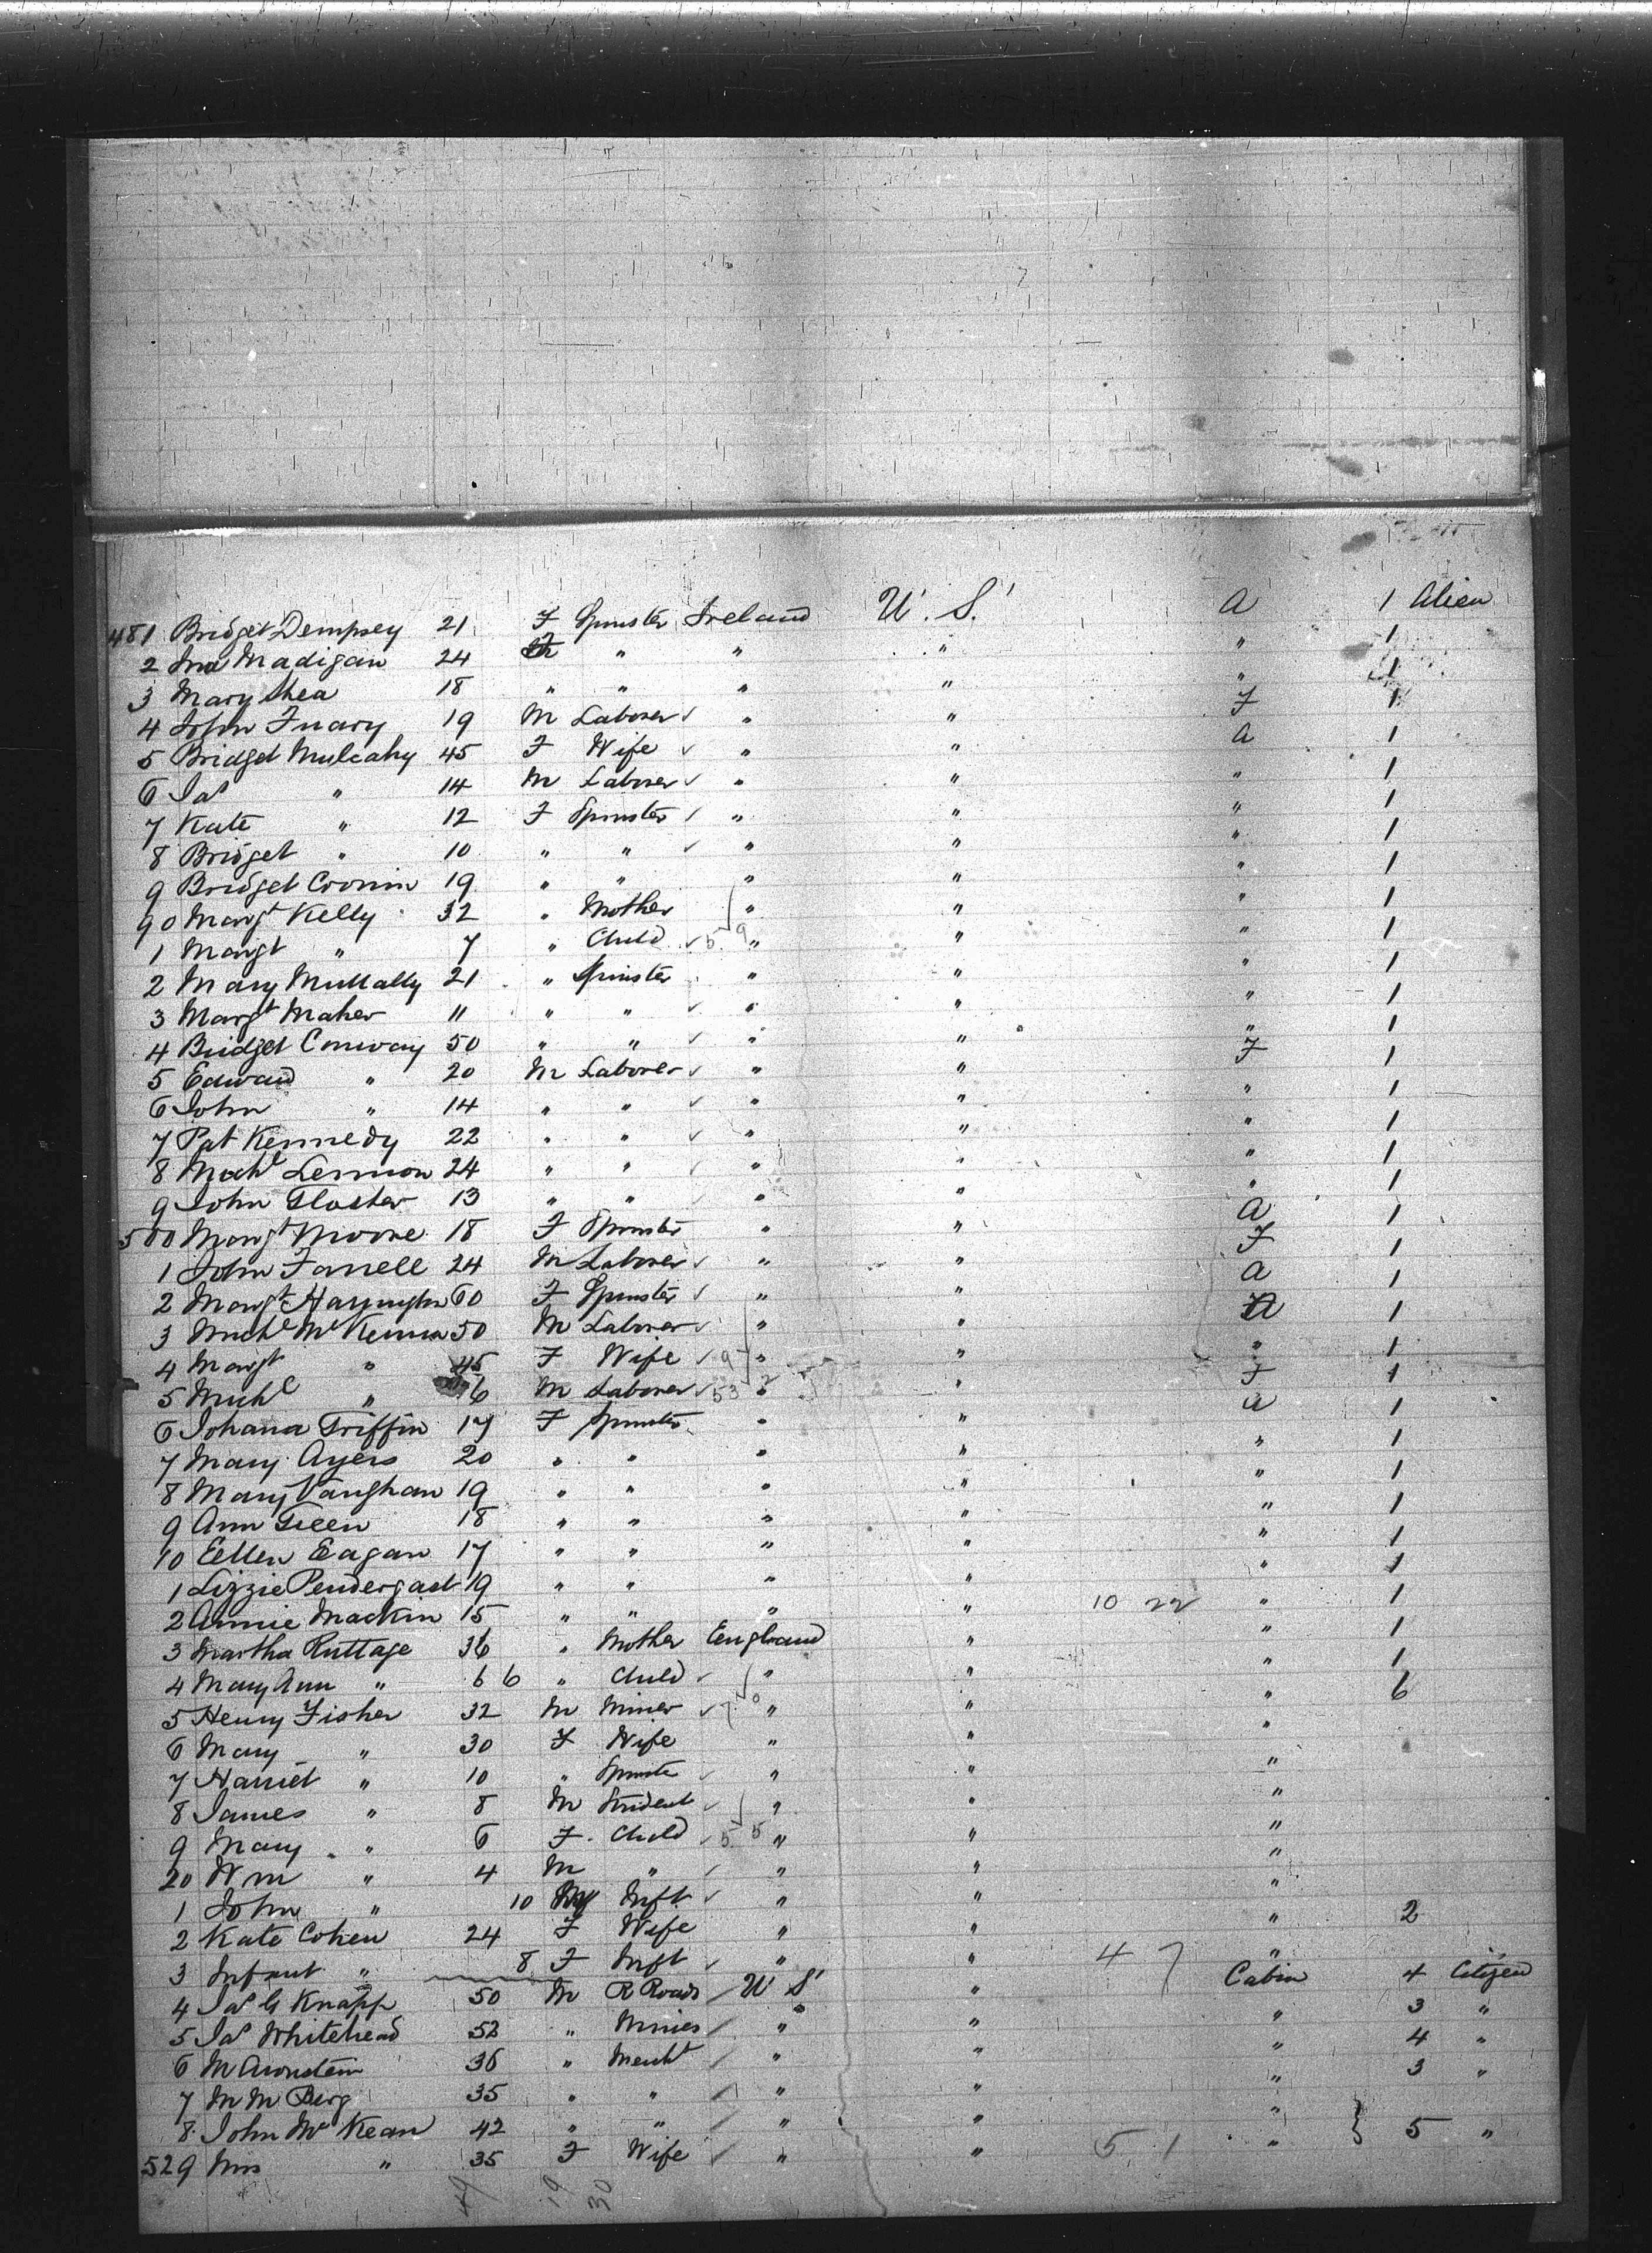 481 Bridget Dempsey 21 F Spinster Ireland U.S. A 1 Alien
2 Madigan 24 F " " " " 1
3 Mary Shea 18 " " " " " 1
4 John 19 M Laborer " " F 1
5 Bridget Mulcahy 45 F Wife " " A 1
6 Jas " 14 M Laborer " " " 1
7 Kate " 12 F Spinster " " " 1
8 Bridget " 10 " " " " " 1
9 Bridget Cronin 19 " " " " " 1
90 Margt Kelly 32 " Mother " " " 1
1 Margt " 7 " Child 5 9 " " " 1
2 Mary Mullally 21 " Spinster " " " 1
3 Margt Maher 11 " " " " " 1
4 Bridget Conway 50 " " " " " 1
5 Edward " 20 M Laborer " " F 1
6 John " 14 " " " " " 1
7 Pat Kennedy 22 " " " " " 1
8 Michl Lennon 24 " " " " " 1
9 John Gloster 13 " " " " " 1
500 Margt Moore 18 F Spinster " " A 1
1 John Farrell 24 M Laborer " " F 1
2 Margt Harrington 60 F Spinster " " A 1
3 Michl McKenna 50 M Laborer " " A 1
4 Margt " 45 F Wife 9 " " " 1
5 Michl " 6 M Laborer 53 2 " " F 1
6 Johana Griffin 17 F Spinster " " A 1
7 Mary Ayers 20 " " " " " 1
8 Mary Vaughan 19 " " " " " 1
9 Ann Green 18 " " " " " 1
10 Ellen Eagan 17 " " " " " 1
1 Lizzie Pendergast 19 " " " " " 1
2 Annie Mackin 15 " " " " 10 22 " 1
3 Martha Ruttage 36 " Mother England " " 1
4 Mary Ann " 6 6 " Child " " " 1
5 Henry Fisher 32 M Miner " " " 6
6 Mary " 30 F Wife " " "
7 Harriet " 10 " Spinster " " "
8 James " 8 M Student " " "
9 Mary " 6 F Child 5 5 " " "
20 Wm " 4 M " " " "
1 John " 10 M Inft " " "
2 Kate Cohen 24 F Wife " " " 2
3 Infant " 8 F Inft " " 4 7 "
4 Jas G Knapp 50 M R Roads U S " Cabin 4 Citizen
5 Jas Whitehead 52 " Mines " " " 3 "
6 M Aronstein 36 " Mercht " " " 4 "
7 M M Berg 35 " " " " " 3 "
8 John McKean 42 " " " " "
529 Mrs " 35 F Wife " " 5 1 " 5 "
49 19 30